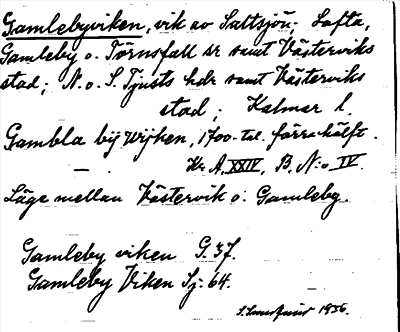 Gamlebyviken, vik av Saltsjön; Lofta,
Gamleby o. Törnsfall sr samt Västerviks
stad; N. o. S. Tjusts hdr samt Västerviks
stad; Kalmar l.
Gambla bij Wijken, 1700-tal. förra hälft.
— . Kr. A. XXIV, B, N:o IV.
Läge mellan Västervik o. Gamleby.
Gamleby viken G. 37.
Gamleby Viken Sj. 64.
1936.